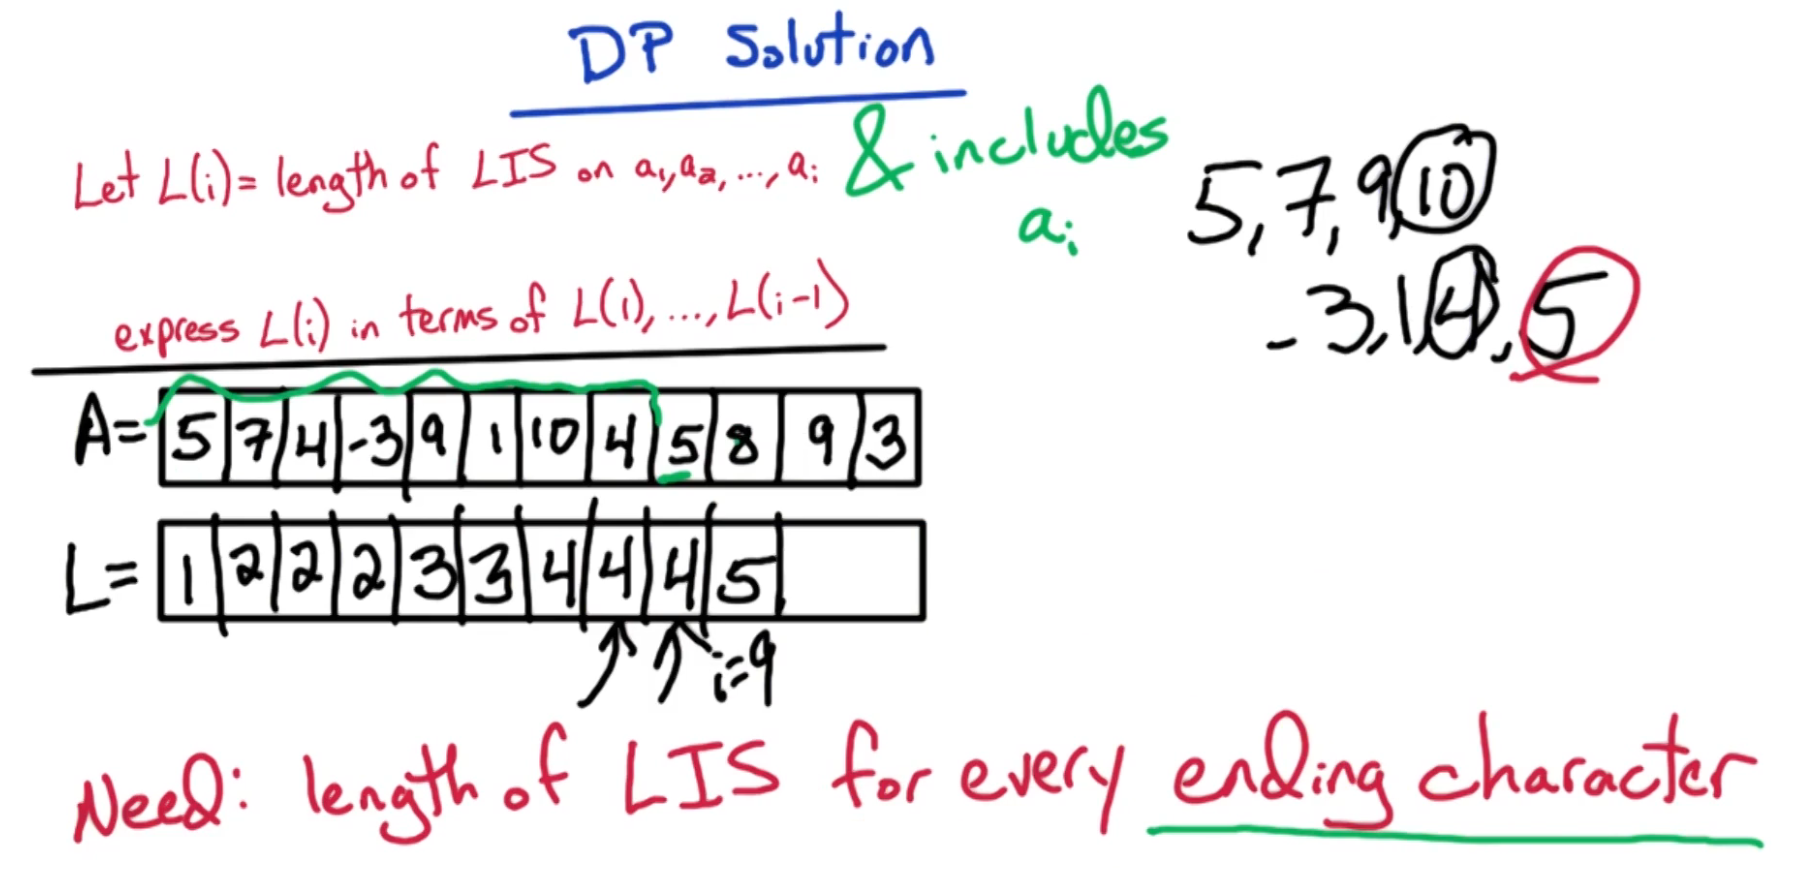 DP Solution
Let L(i) = length of LIS on a₁, a₂, ..., aᵢ & includes aᵢ
express L(i) in terms of L(1), ..., L(i-1)
5, 7, 9, 10
-3, 1, 4, 5
A= 5 7 4 -3 9 1 10 4 5 8 9 3
L= 1 2 2 2 3 3 4 4 4 5
i=9
Need: length of LIS for every ending character